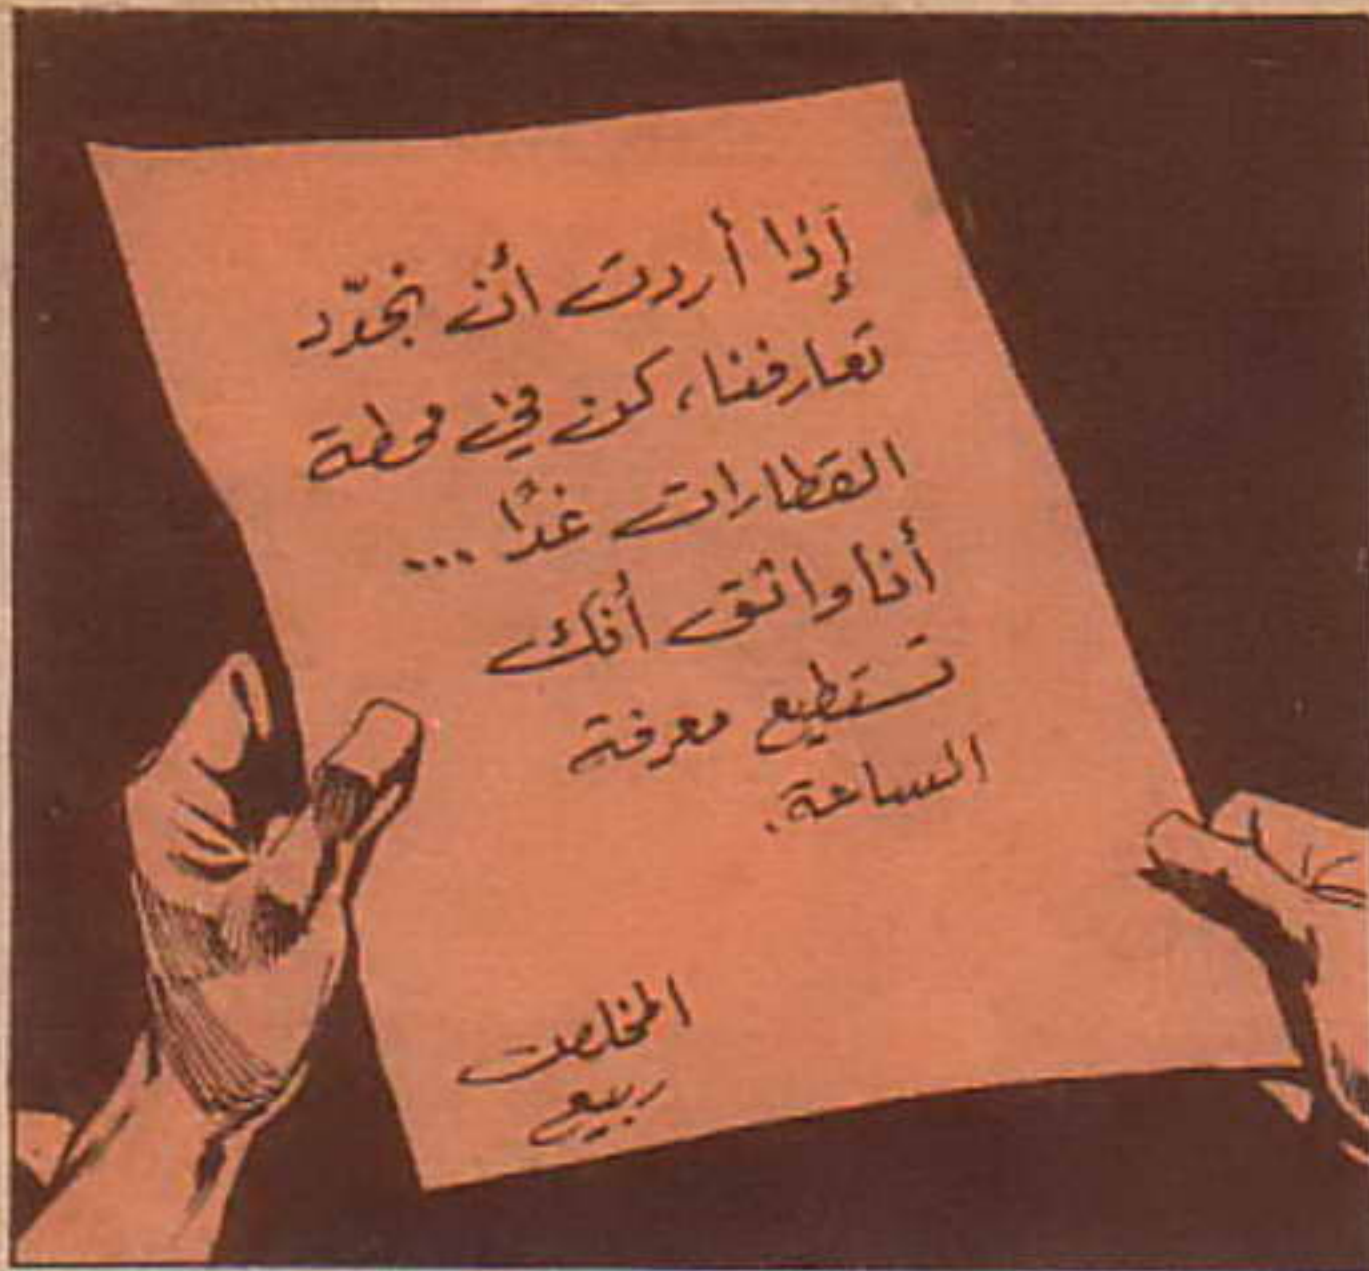 إذا أردت أن نجدّد
تعارفنا، كن في محطة
القطارات غدًا ...
أنا واثق أنك
تستطيع معرفة
الساعة.
المخلص
ربيع